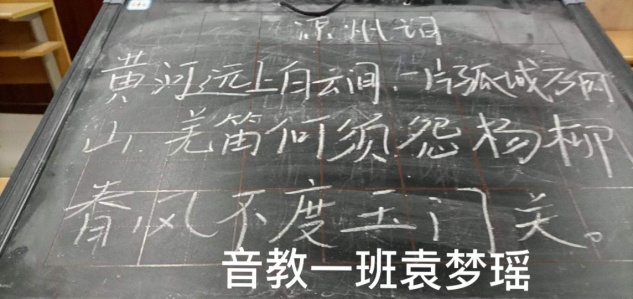 凉州词
黄河远上白云间,一片孤城万仞
山.羌笛何须怨杨柳
春风不度玉门关。
音教一班袁梦瑶